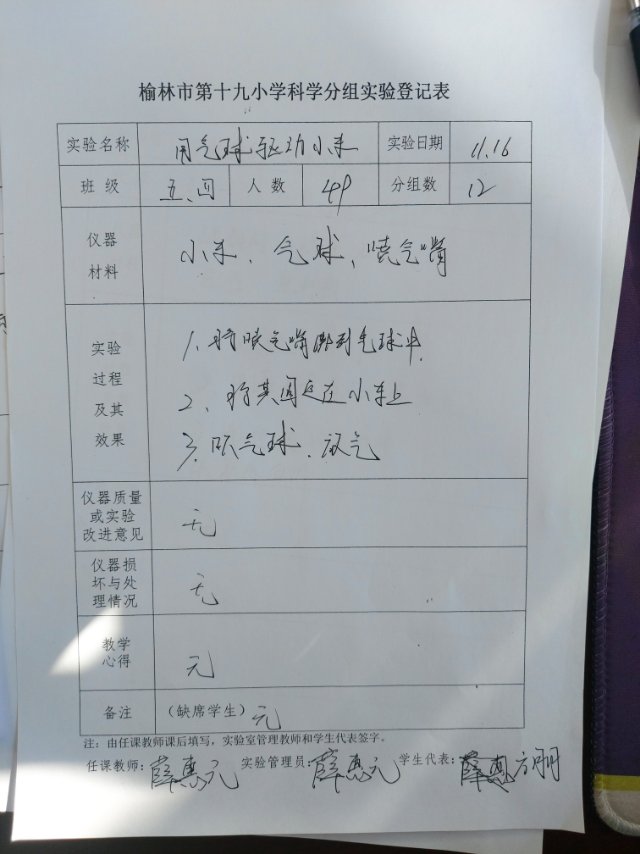 榆林市第十九小学科学分组实验登记表
实验名称 用气球驱动小车 实验日期 11.16
班级 五.四 人数 49 分组数 12
仪器
材料
小车、气球、喷气嘴
实验
过程
及其
效果
1、将喷气嘴 到气球中
2、将其固定在小车上
3、吹气球、放气
仪器质量
或实验
改进意见
无
仪器损
坏与处
理情况
无
教学
心得
无
备注 (缺席学生) 无
注:由任课教师课后填写,实验室管理教师和学生代表签字。
任课教师:薛惠元 实验管理员:薛惠元 学生代表: